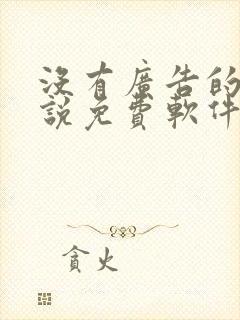 沒有廣告的
說免費軟件
貪火